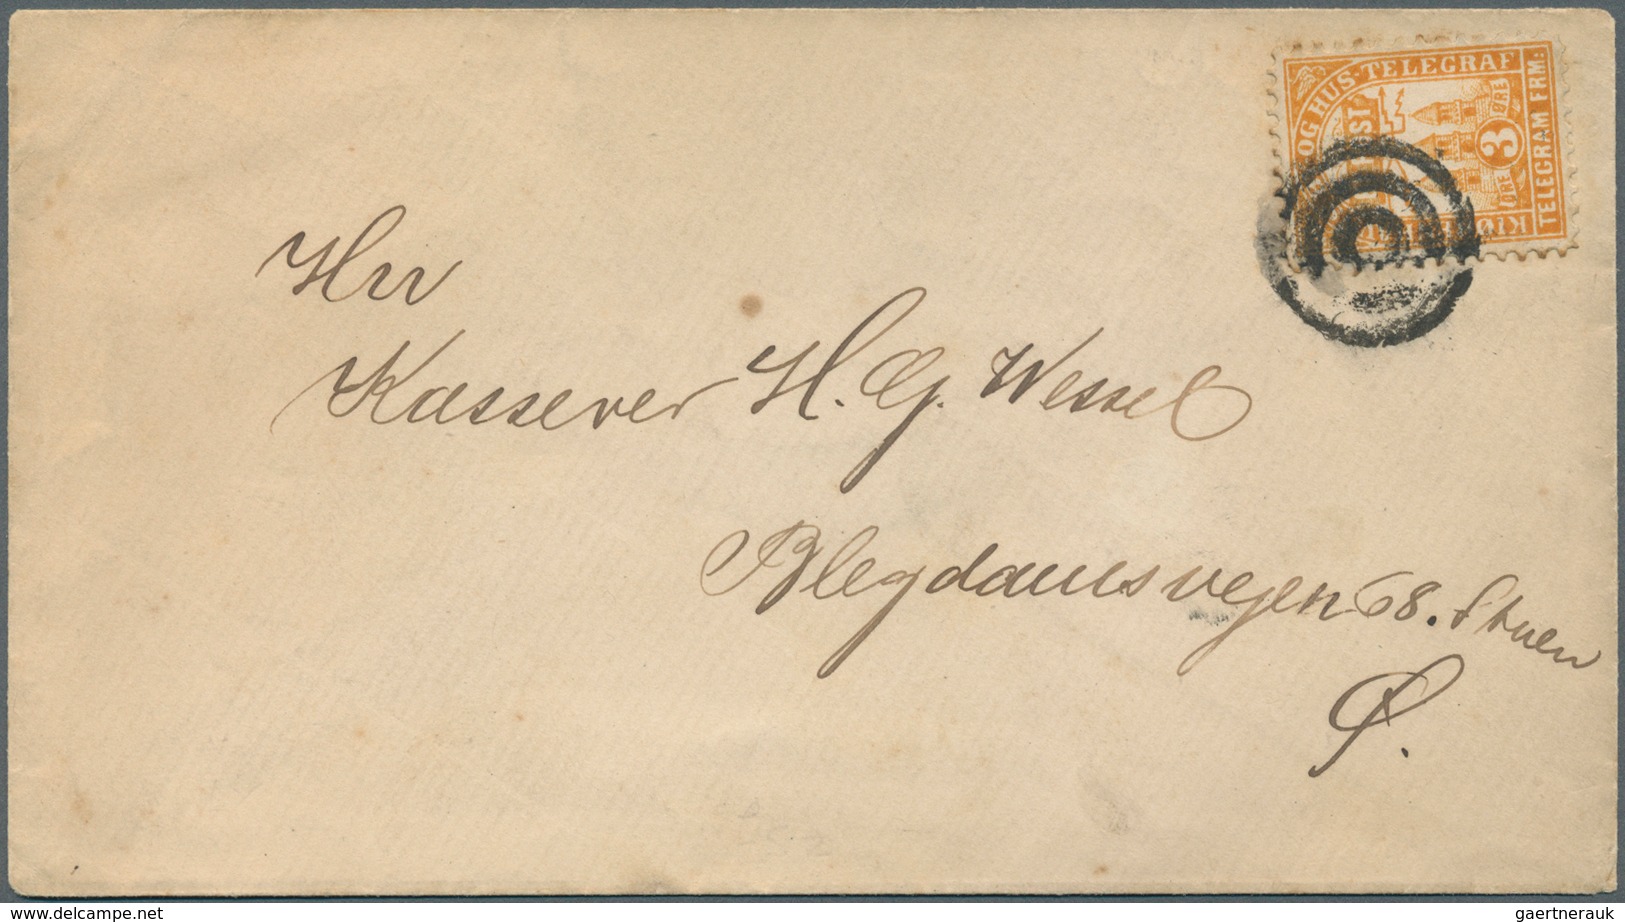 OG HUS-TELEGRAF
TELEGRAM FRM:
ØRE 3 ØRE
Hrr
Kasserer H. G. Wessel
Blegdamsvejen 68. Stuen
Ø.
www.delcampe.net
gaertnerauk